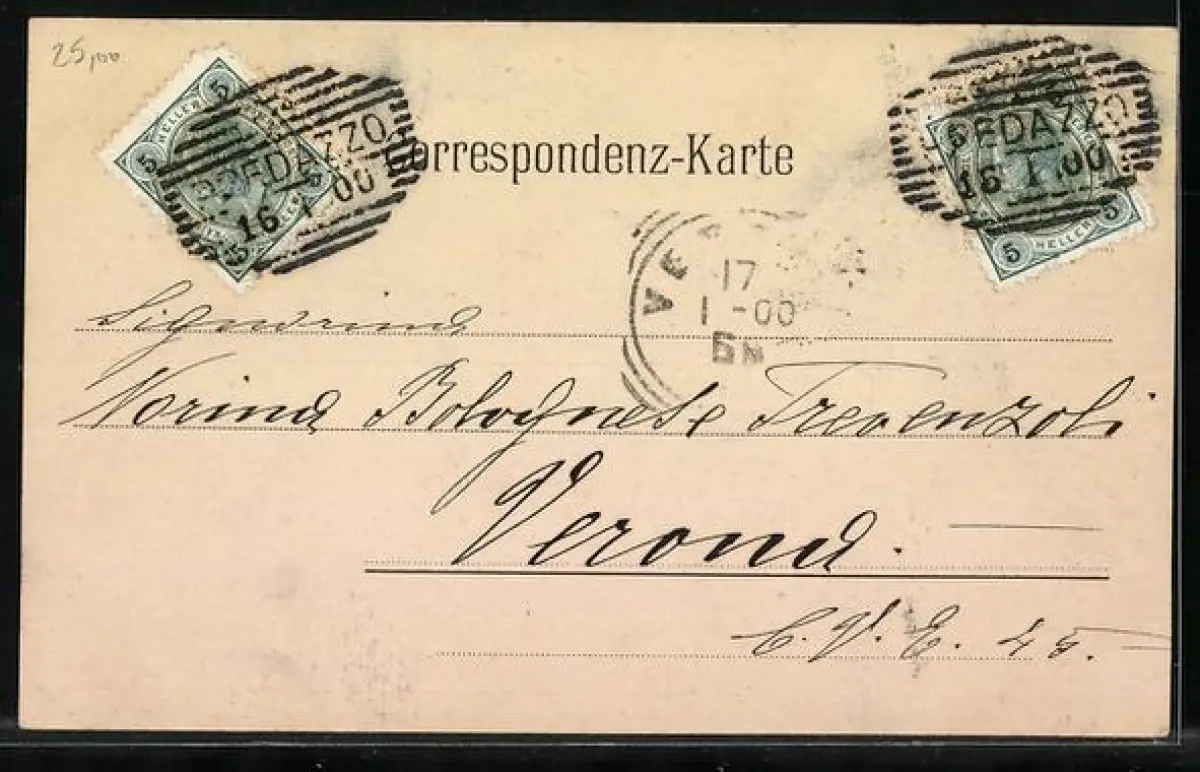 25,00
Correspondenz-Karte
5 HELLER 5
PREDAZZO
16 1 00
5 HELLER 5
PREDAZZO
16 1 00
VE
17
1-00
Signorina
Norina Bolognese Trevenzoli
Verona.
C. V. E. 45.